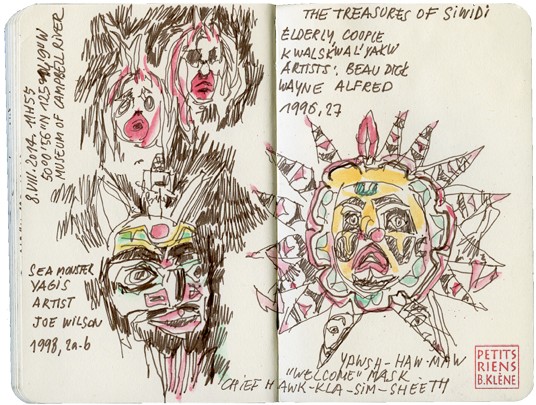 8.VIII.2014, 11H55
MUSEUM OF CAMPBELL RIVER
SEA MONSTER
YAGIS
ARTIST
JOE WILSON
1998, 2a-b
THE TREASURES OF SIWIDI
ELDERLY COUPLE
KWALSKWAL'YAKW
ARTISTS: BEAU DICK
WAYNE ALFRED
1996, 27
YAWSH-HAW-MAW
"WELCOME" MASK
CHIEF HAWK-KLA-SIM-SHEETH
PETITS
RIENS
B.KLÈNE